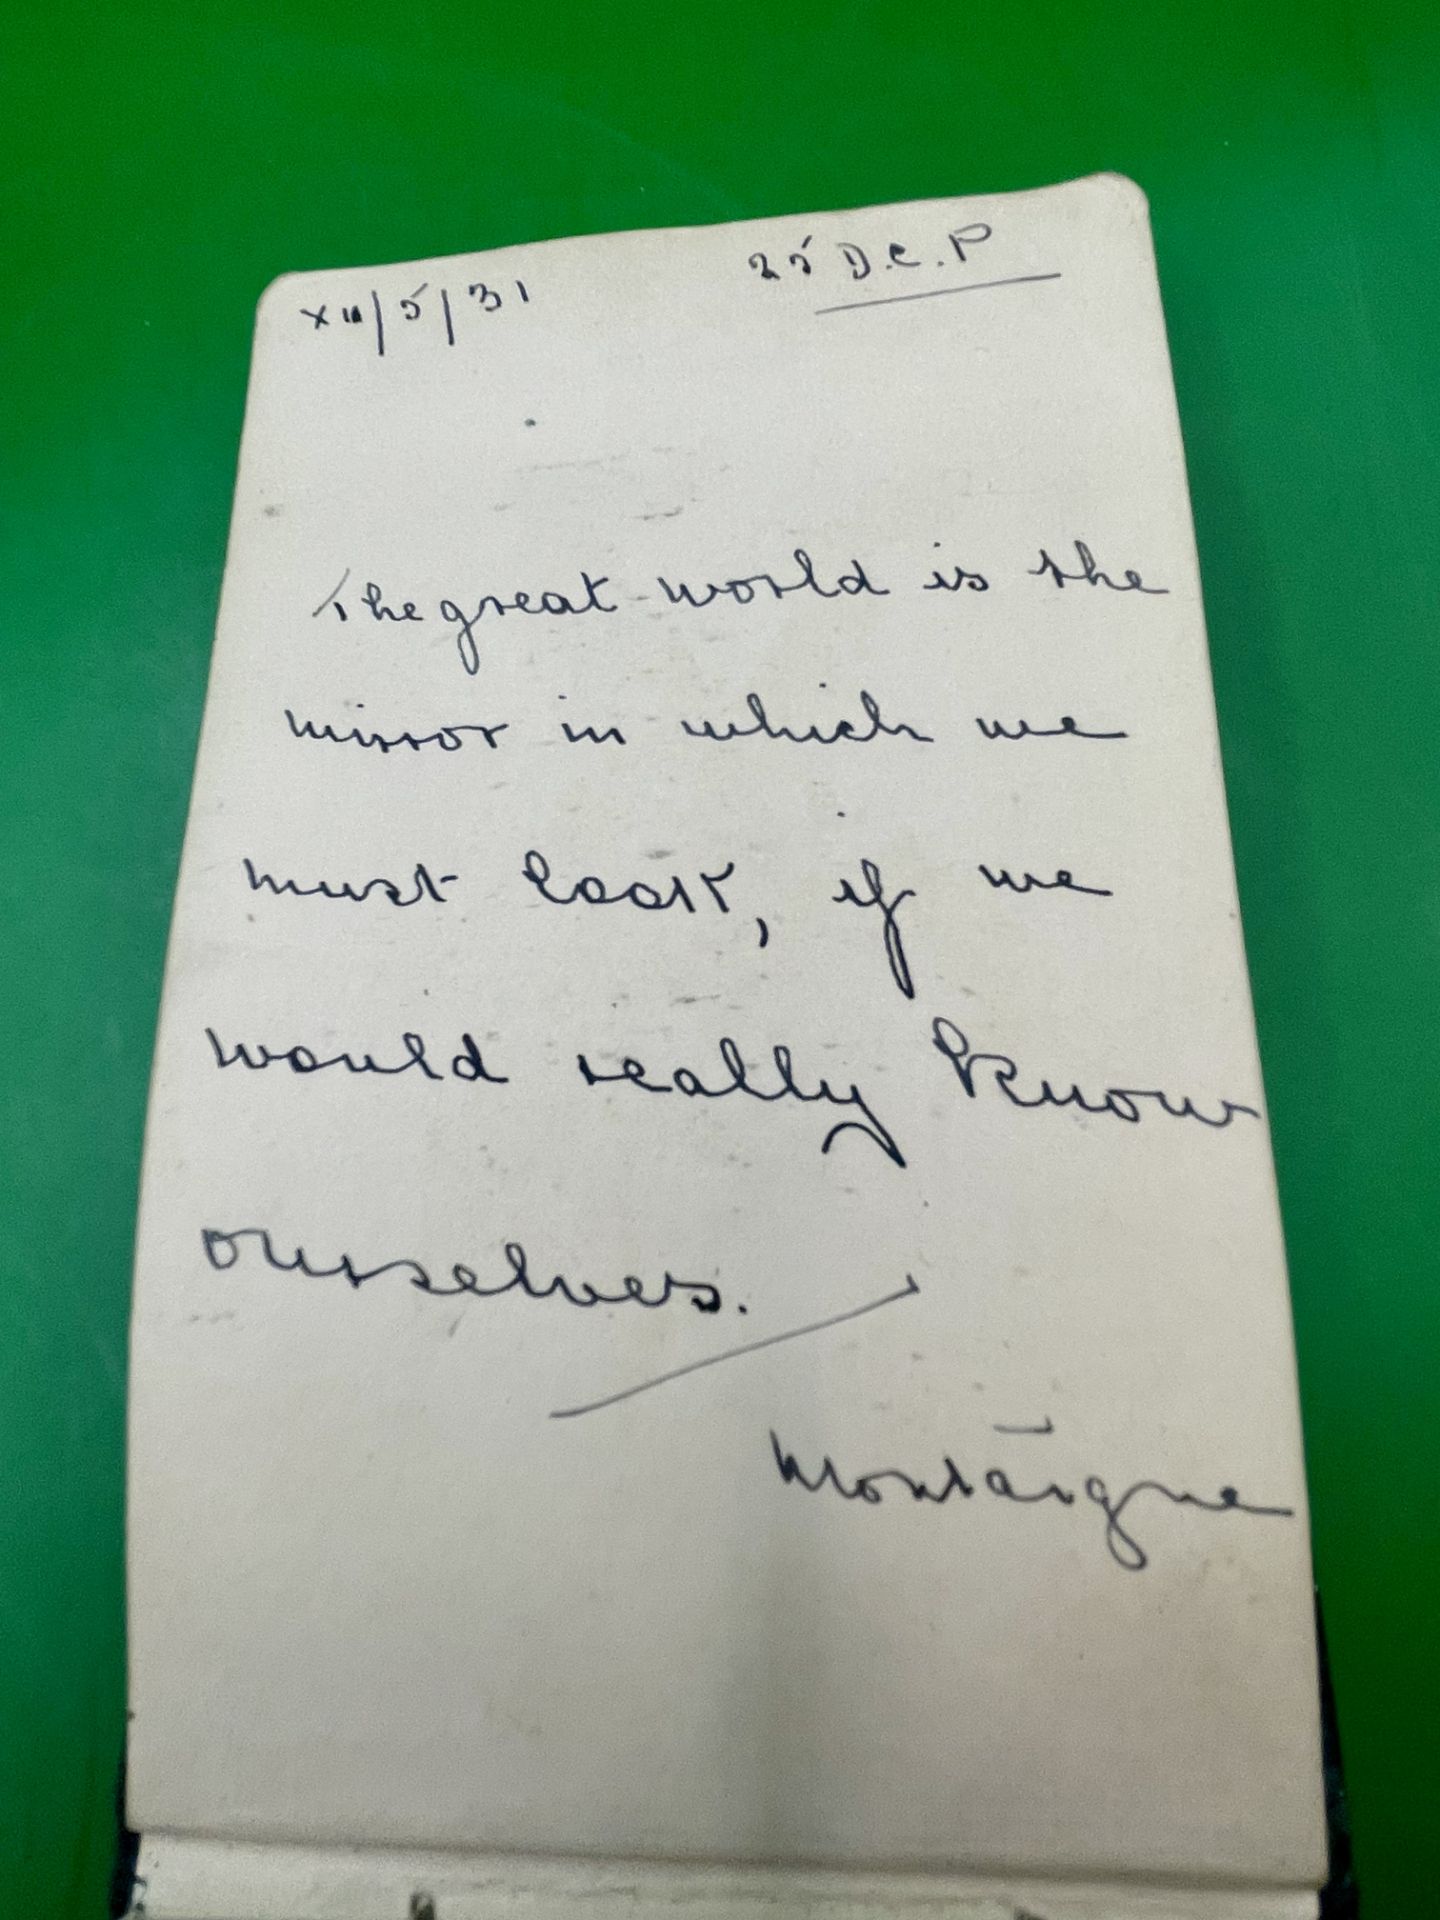 XIII/5/31 25 D.C.P
The great world is the
mirror in which we
must look, if we
would really know
ourselves.
Montaigne